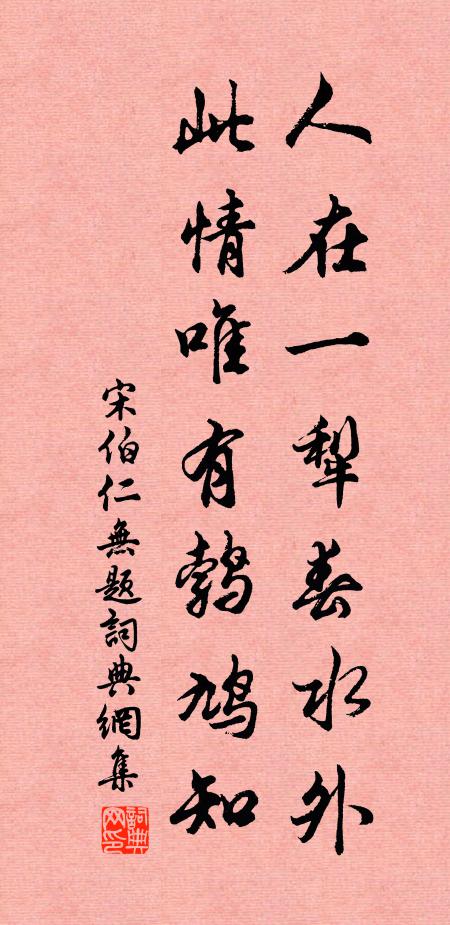 人在一犁春水外
此情唯有鹁鸠知
宋伯仁無题詞典網集
詞典网印